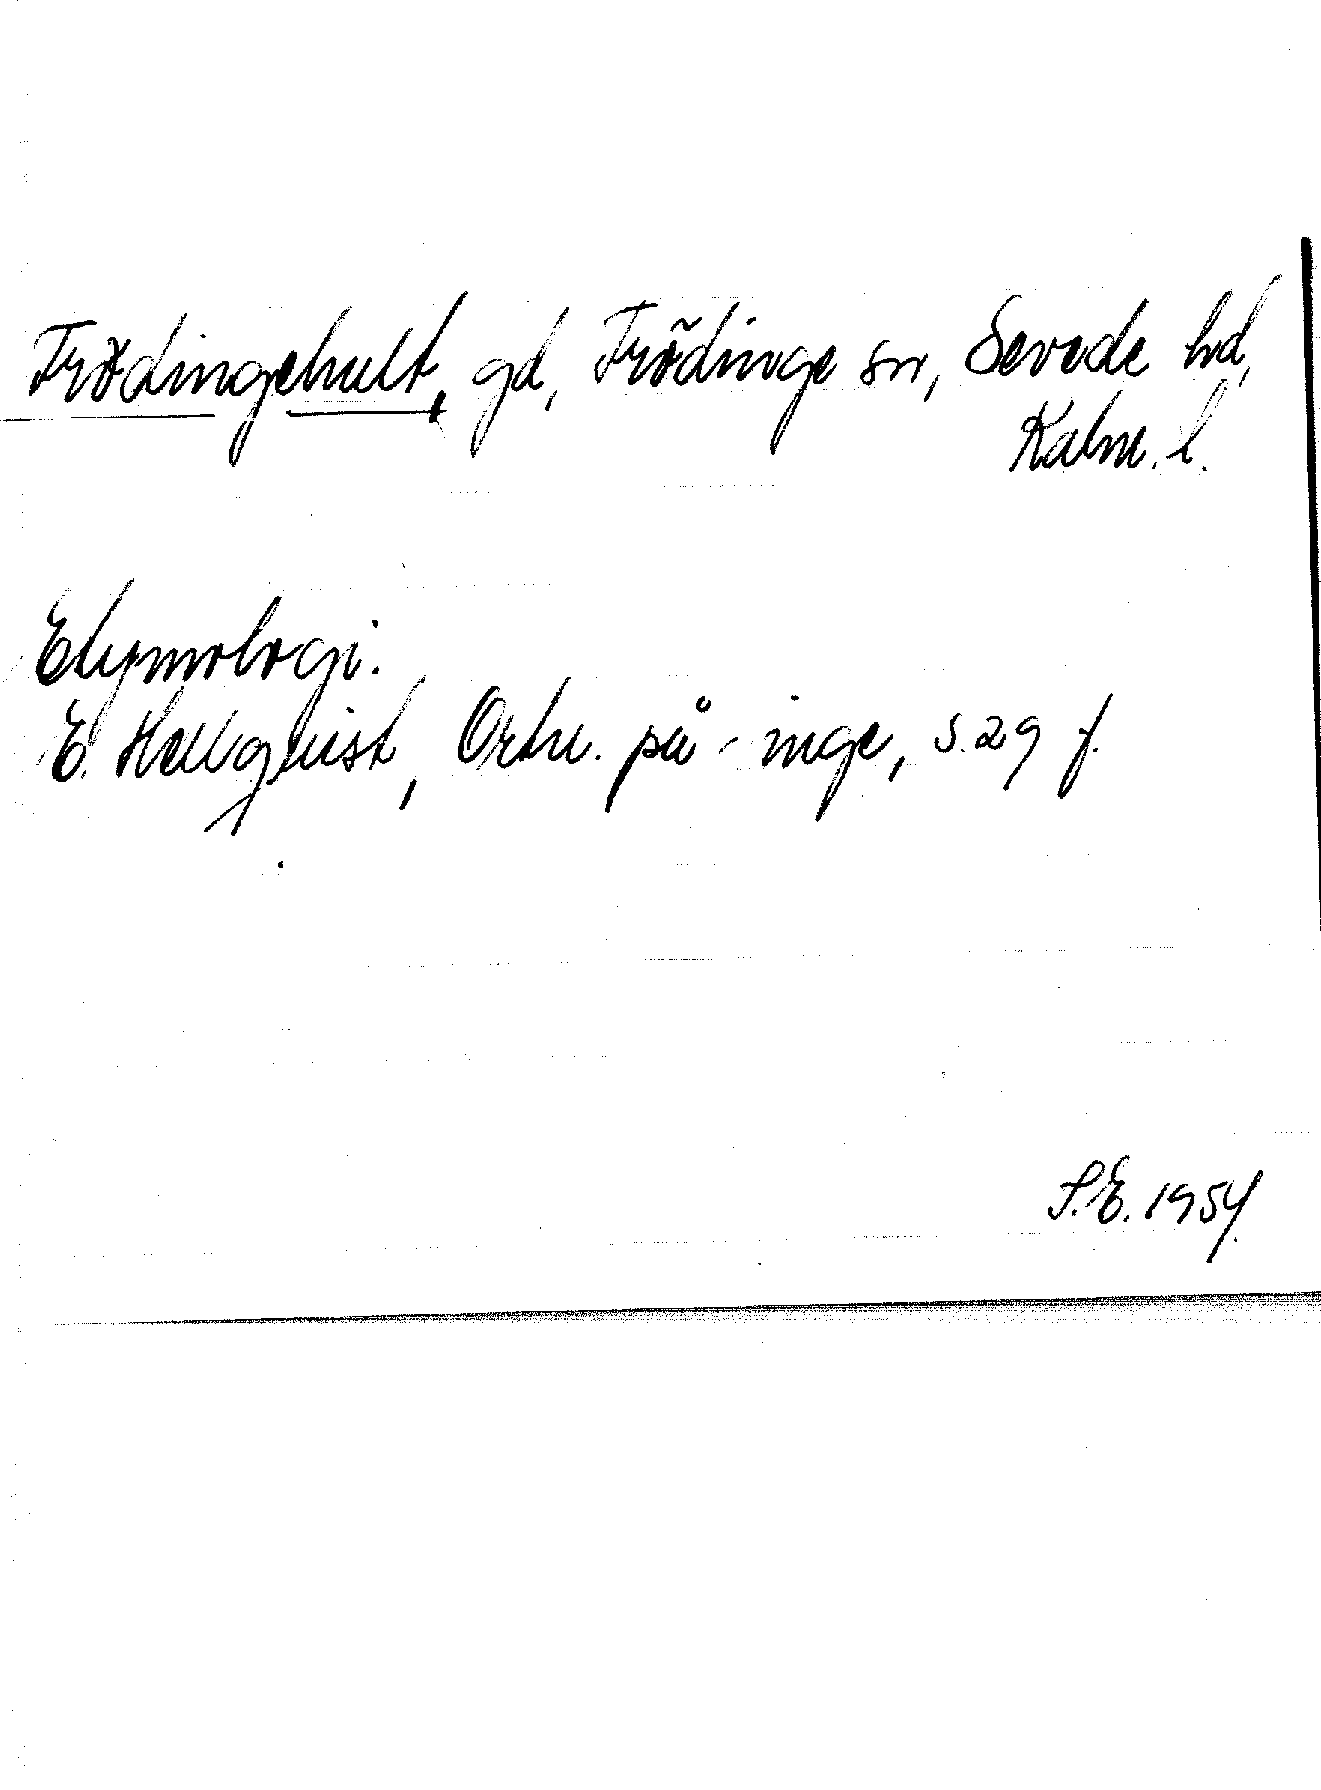 Frödingehult, gd, Frödinge sn, Sevede hd,
Kalm. l.
Etymologi.
E. Hellquist, Ortn. på -inge, s. 29 f.
S.E. 1954.